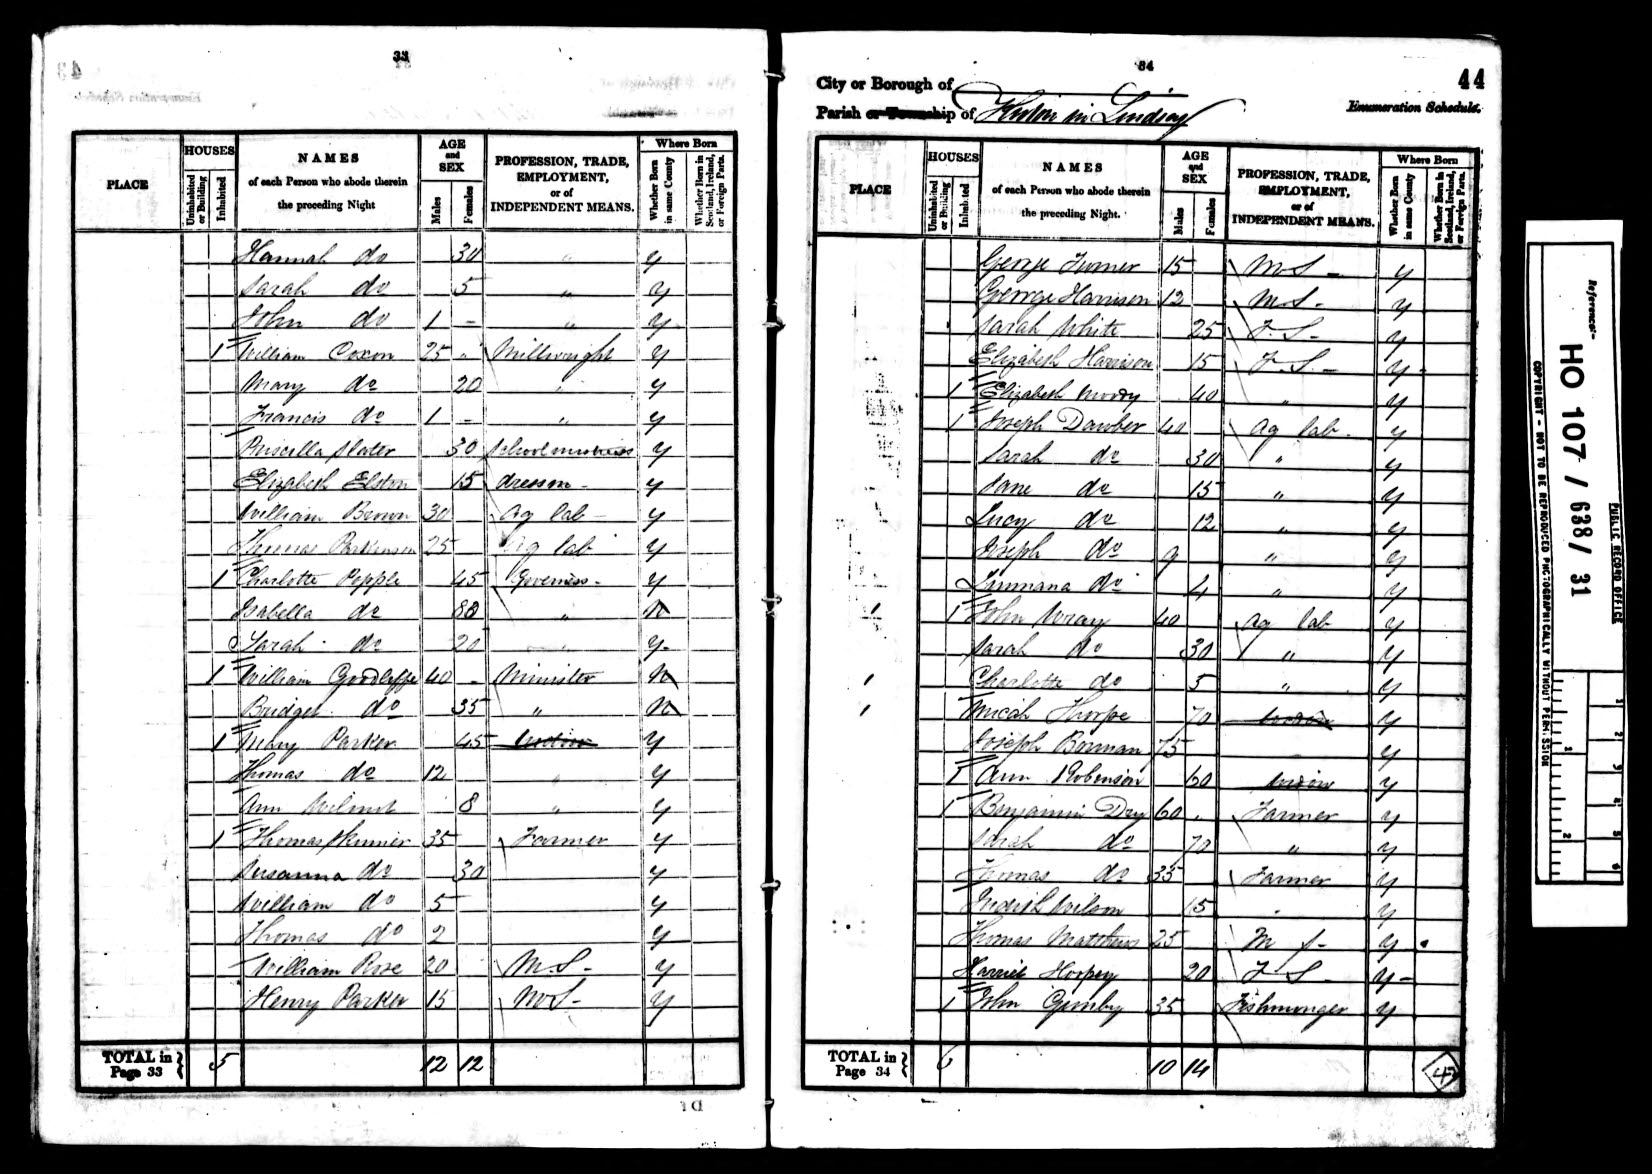 33
HOUSES
NAMES
of each Person who abode therein
the preceding Night
AGE
and
SEX
PROFESSION, TRADE,
EMPLOYMENT,
or of
INDEPENDENT MEANS.
Where Born
PLACE
Uninhabited
or Building
Inhabited
Males
Females
Whether Born
in same County
Whether Born in
Scotland, Ireland,
or Foreign Parts.
Hannah do 30 " y
Sarah do 5 " y
John do 1 - " y
1 William Coxon 25 " Millwright y
Mary do 20 " y
Francis do 1 - " y
Priscilla Slater 30 Schoolmistress y
Elizabeth Elston 15 dressm - y
William Brown 30 ag lab y
Thomas Parkinson 25 ag lab y
1 Charlotte Popple 45 Governess - y
Isabella do 80 " N
Sarah do 20 y
1 William Goodliffe 40 - Minister N
Bridget do 35 " N
1 Mary Parker 45 y
Thomas do 12 " y
Ann Wilmot 8 " y
1 Thomas Skinner 35 Farmer y
Susanna do 30 y
William do 5 y
Thomas do 2 y
William Rose 20 M.S - y
Henry Parker 15 M.S - y
TOTAL in
Page 33
5 12 12
34
44
City or Borough of
Parish or Township of Kirton in Lindsay
Enumeration Schedule.
HOUSES
NAMES
of each Person who abode therein
the preceding Night.
AGE
and
SEX
PROFESSION, TRADE,
EMPLOYMENT,
or of
INDEPENDENT MEANS.
Where Born
PLACE
Uninhabited
or Building
Inhabited
Males
Females
Whether Born
in same County
Whether Born in
Scotland, Ireland,
or Foreign Parts.
George Turner 15 M.S - y
George Harrison 12 M.S - y
Sarah White 25 F.S - y
Elizabeth Harrison 15 F.S - y
1 Elizabeth Moody 40 " y
1 Joseph Dawber 40 ag lab - y
Sarah do 30 " y
Jane do 15 " y
Lucy do 12 " y
Joseph do 9 " y
do 4 " y
1 John Wray 40 ag lab y
Sarah do 30 " y
Charlotte do 5 " y
Micah Thorpe 70 y
Joseph Borman 75 y
1 Ann Robinson 60 widow y
1 Benjamin Dry 60 Farmer y
Sarah do 70 " y
Thomas do 35 Farmer y
Wilson 15 y
Thomas Matthews 25 M S - y
Harriet 20 F.S - y
1 John 35 Fishmonger y
TOTAL in
Page 34
6 10 14
Reference:-
HO 107 / 638 / 31
PUBLIC RECORD OFFICE
COPYRIGHT - NOT TO BE REPRODUCED PHOTOGRAPHICALLY WITHOUT PERMISSION